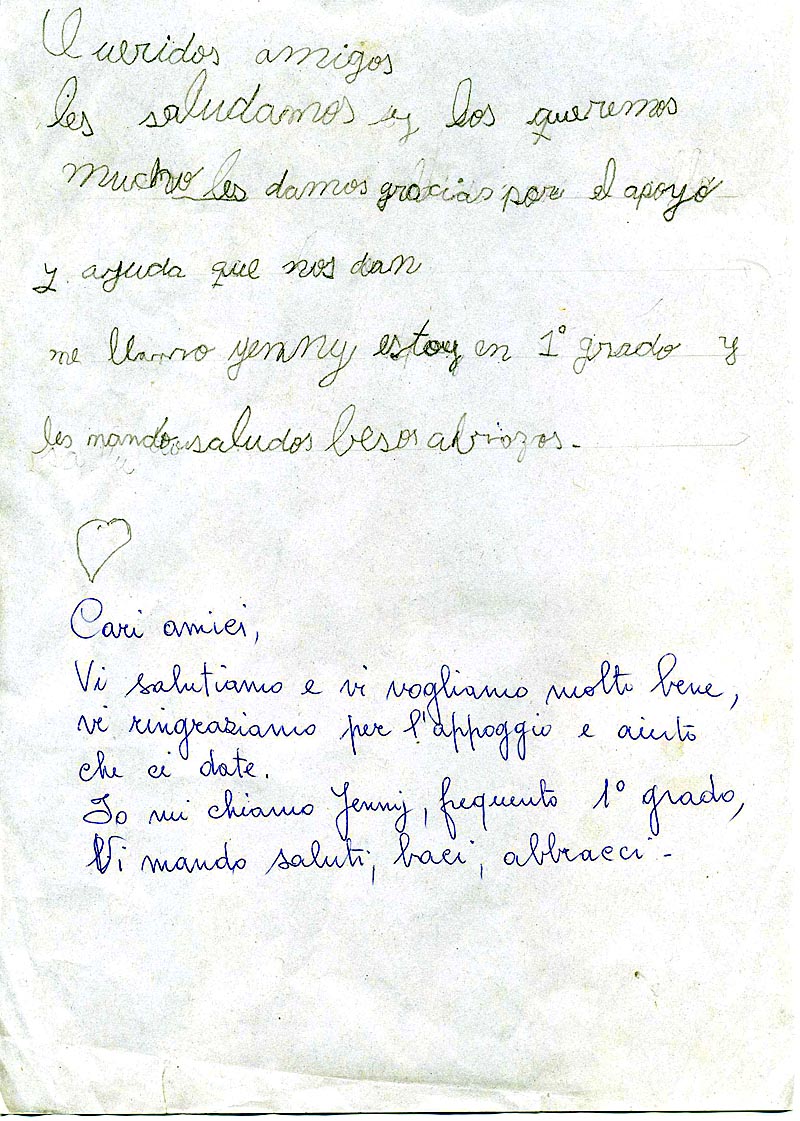 Queridos amigos
les saludamos y los queremos
mucho les damos gracias por el apoyo
y ayuda que nos dan
me llamo yenny estoy en 1° grado y
les mando saludos besos abrazos.
Cari amici,
Vi salutiamo e vi vogliamo molto bene,
vi ringraziamo per l'appoggio e aiuto
che ci date.
Io mi chiamo Yenny, frequento 1° grado,
Vi mando saluti, baci, abbracci.